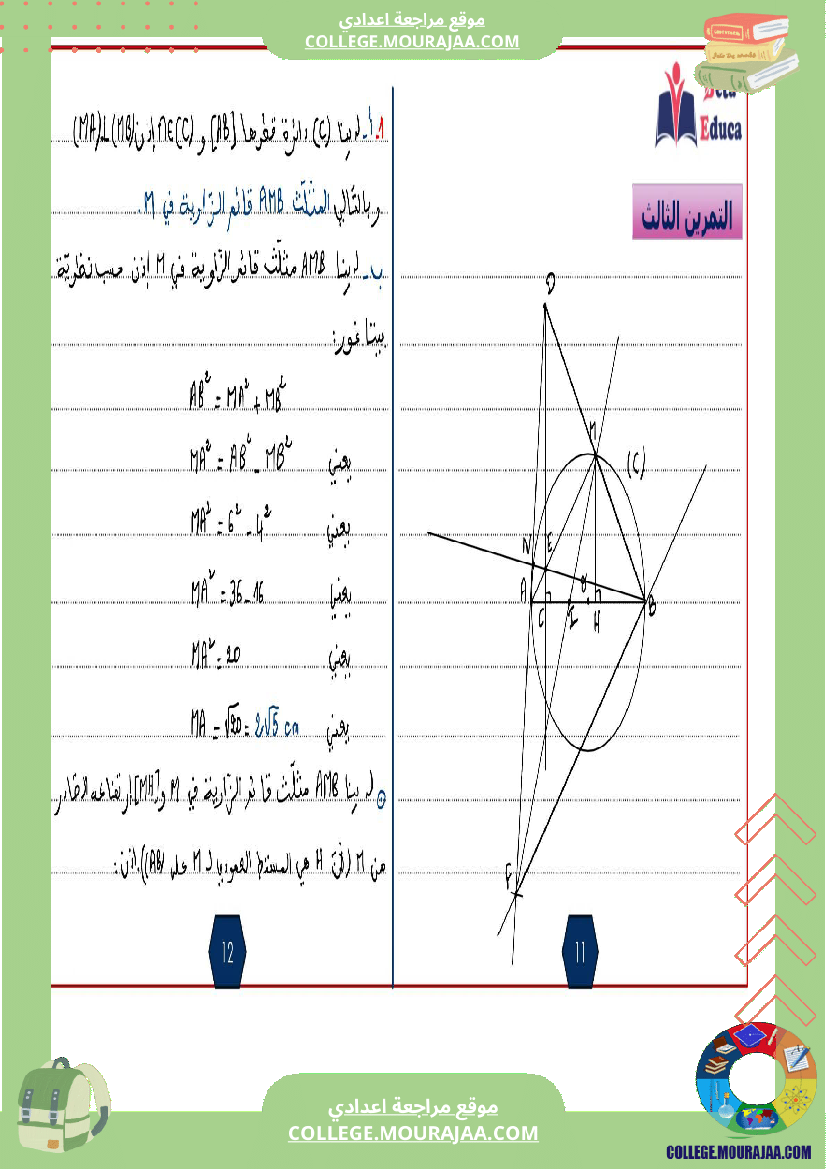 موقع مراجعة اعدادي
COLLEGE.MOURAJAA.COM
Beta
Educa
التمرين الثالث
D
M
(C)
N
E
A
O
B
C
I
H
F
11
1-أ- لدينا (C) دائرة قطرها [AB] و M∈(C) إذن (MA)⊥(MB)
وبالتالي المثلّث AMB قائم الزّاوية في M.
ب- لدينا AMB مثلّث قائم الزّاوية في M إذن حسب نظريّة
بيتاغور:
AB² = MA² + MB²
يعني MA² = AB² - MB²
يعني MA² = 6² - 4²
يعني MA² = 36 - 16
يعني MA² = 20
يعني MA = √20 = 2√5 cm
لدينا AMB مثلّث قائم الزّاوية في M و [MH] ارتفاعه الصّادر
من M (لأنّ H هي المسقط العمودي لـ M على (AB)) إذن:
12
موقع مراجعة اعدادي
COLLEGE.MOURAJAA.COM
COLLEGE.MOURAJAA.COM